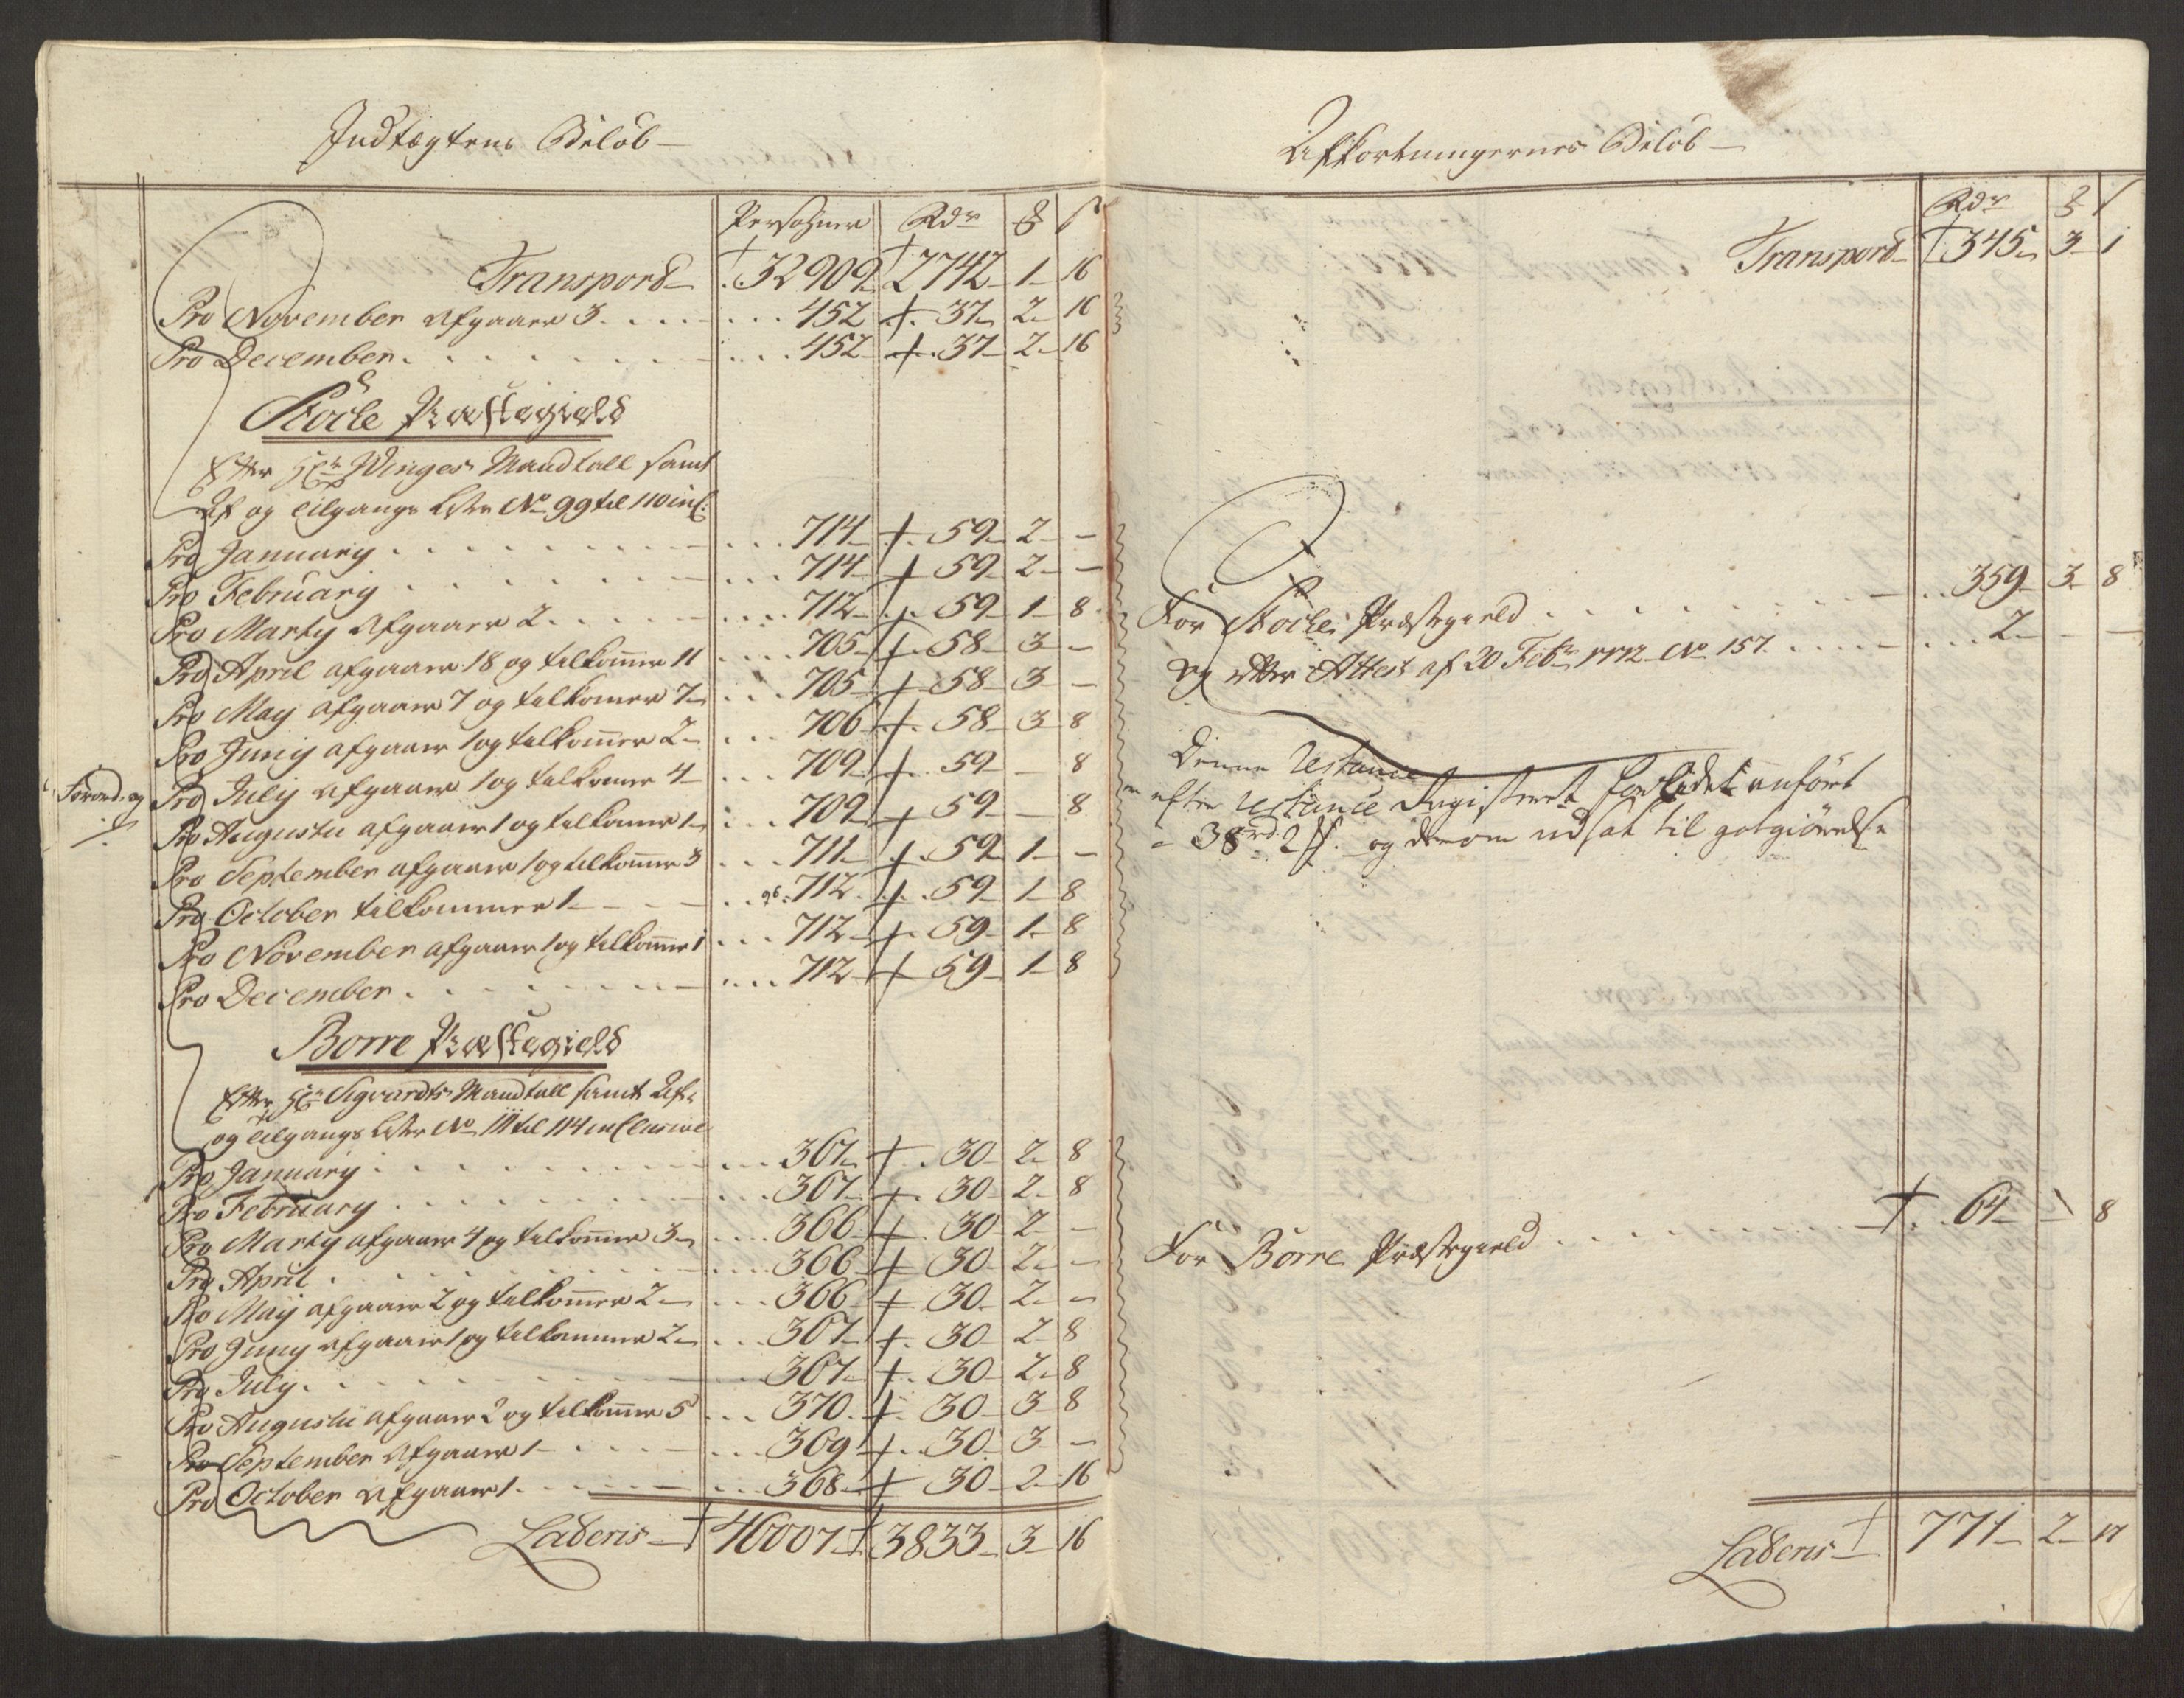 Indtægtens Beløb
Persohner Rdr
Transpord 32909 2742 1 16
Pro November afgaaer 3 452 37 2 16
Pro December 452 37 2 16
Præstegield
Efter Hr Winges Mandtall samt
Af og tilgangs Lister No 99 til 110 incl:
Pro January 714 59 2 -
Pro February 714 59 2 -
Pro Marty Afgaaer 2 712 59 1 8
Pro April afgaaer 18 og tilkommer 11 705 58 3 -
Pro May afgaaer 7 og tilkomer 7 705 58 3 -
Pro Juny afgaaer 1 og tilkommer 2 706 58 3 8
Pro July afgaaer 1 og tilkomer 4 709 59 - 8
Pro Augusty afgaaer 1 og tilkomer 1 709 59 - 8
Pro September afgaaer 1 og tilkommer 3 711 59 1 -
Pro October tilkommer 1 712 59 1 8
Pro November afgaaer 1 og tilkommer 1 712 59 1 8
Pro December 712 59 1 8
Borre Præstegield
Efter Hr Sigvardts Mandtall samt Af-
og tilgangs Lister No 111 til 114 inclusive
Pro January 367 30 2 8
Pro February 367 30 2 8
Pro Marty afgaaer 4 og tilkommer 3 366 30 2 -
Pro April 366 30 2 -
Pro May afgaaer 2 og tilkommer 2 366 30 2 -
Pro Juny afgaaer 1 og tilkommer 2 367 30 2 8
Pro July 367 30 2 8
Pro Augusty afgaaer 2 og tilkommer 5 370 30 3 8
Pro September Afgaaer 1 369 30 3 -
Pro October Afgaaer 1 368 30 2 16
Lateris 46007 3833 3 16
Afkortningernes Beløb
Rdr
Transpord 345 3 1
For Præstegield 359 3 8
og efter Attest af 20 Febr 1772 No 157 2 - -
Denne Restance
efter Restance Registeret anført
38 rd 2 og derom udsat til godgiørelse
For Borre Præstegield 64 - 8
Lateris 771 2 17